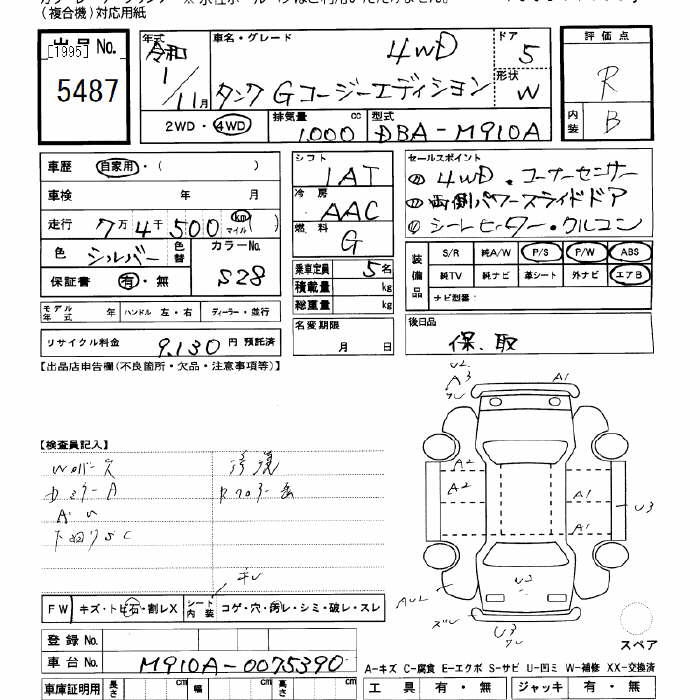 (複合機)対応用紙
出品No.
[1995]
5487
年式 令和 1/11月
車名・グレード 4WD
タンク Gコージーエディション
ドア 5
形状 W
評価点 R
内装 B
2WD・4WD
排気量 1000 cc
型式 DBA-M910A
車歴 自家用・( )
車検 年 月
走行 7万4千500 km マイル ( )
色 シルバー 色替
カラーNo. S28
保証書 有・無
シフト IAT
冷房 AAC
燃料 G
乗車定員 5名
積載量 kg
総重量 kg
名変期限 月 日
セールスポイント
① 4WD・コーナーセンサー
② 両側パワースライドドア
③ シートヒーター・クルコン
装備品
S/R 純A/W P/S P/W ABS
純TV 純ナビ 革シート 外ナビ エアB
ナビ型番
後日品
保、取
モデル年式 年 ハンドル 左・右 ディーラー・並行
リサイクル料金 9,130円 預託済
【出品店申告欄(不良箇所・欠品・注意事項等)】
【検査員記入】
修復
A3
A1
A2
A2
A1
A1
U3
U2
U3
FW キズ・トビ石・割レX
シート内装 コゲ・穴・切レ・シミ・破レ・スレ
登録No.
車台No. M910A-0075390
スペア
A-キズ C-腐食 E-エクボ S-サビ U-凹ミ W-補修 XX-交換済
車庫証明用 長さ cm 幅 cm 高さ cm
工具 有・無 ジャッキ 有・無